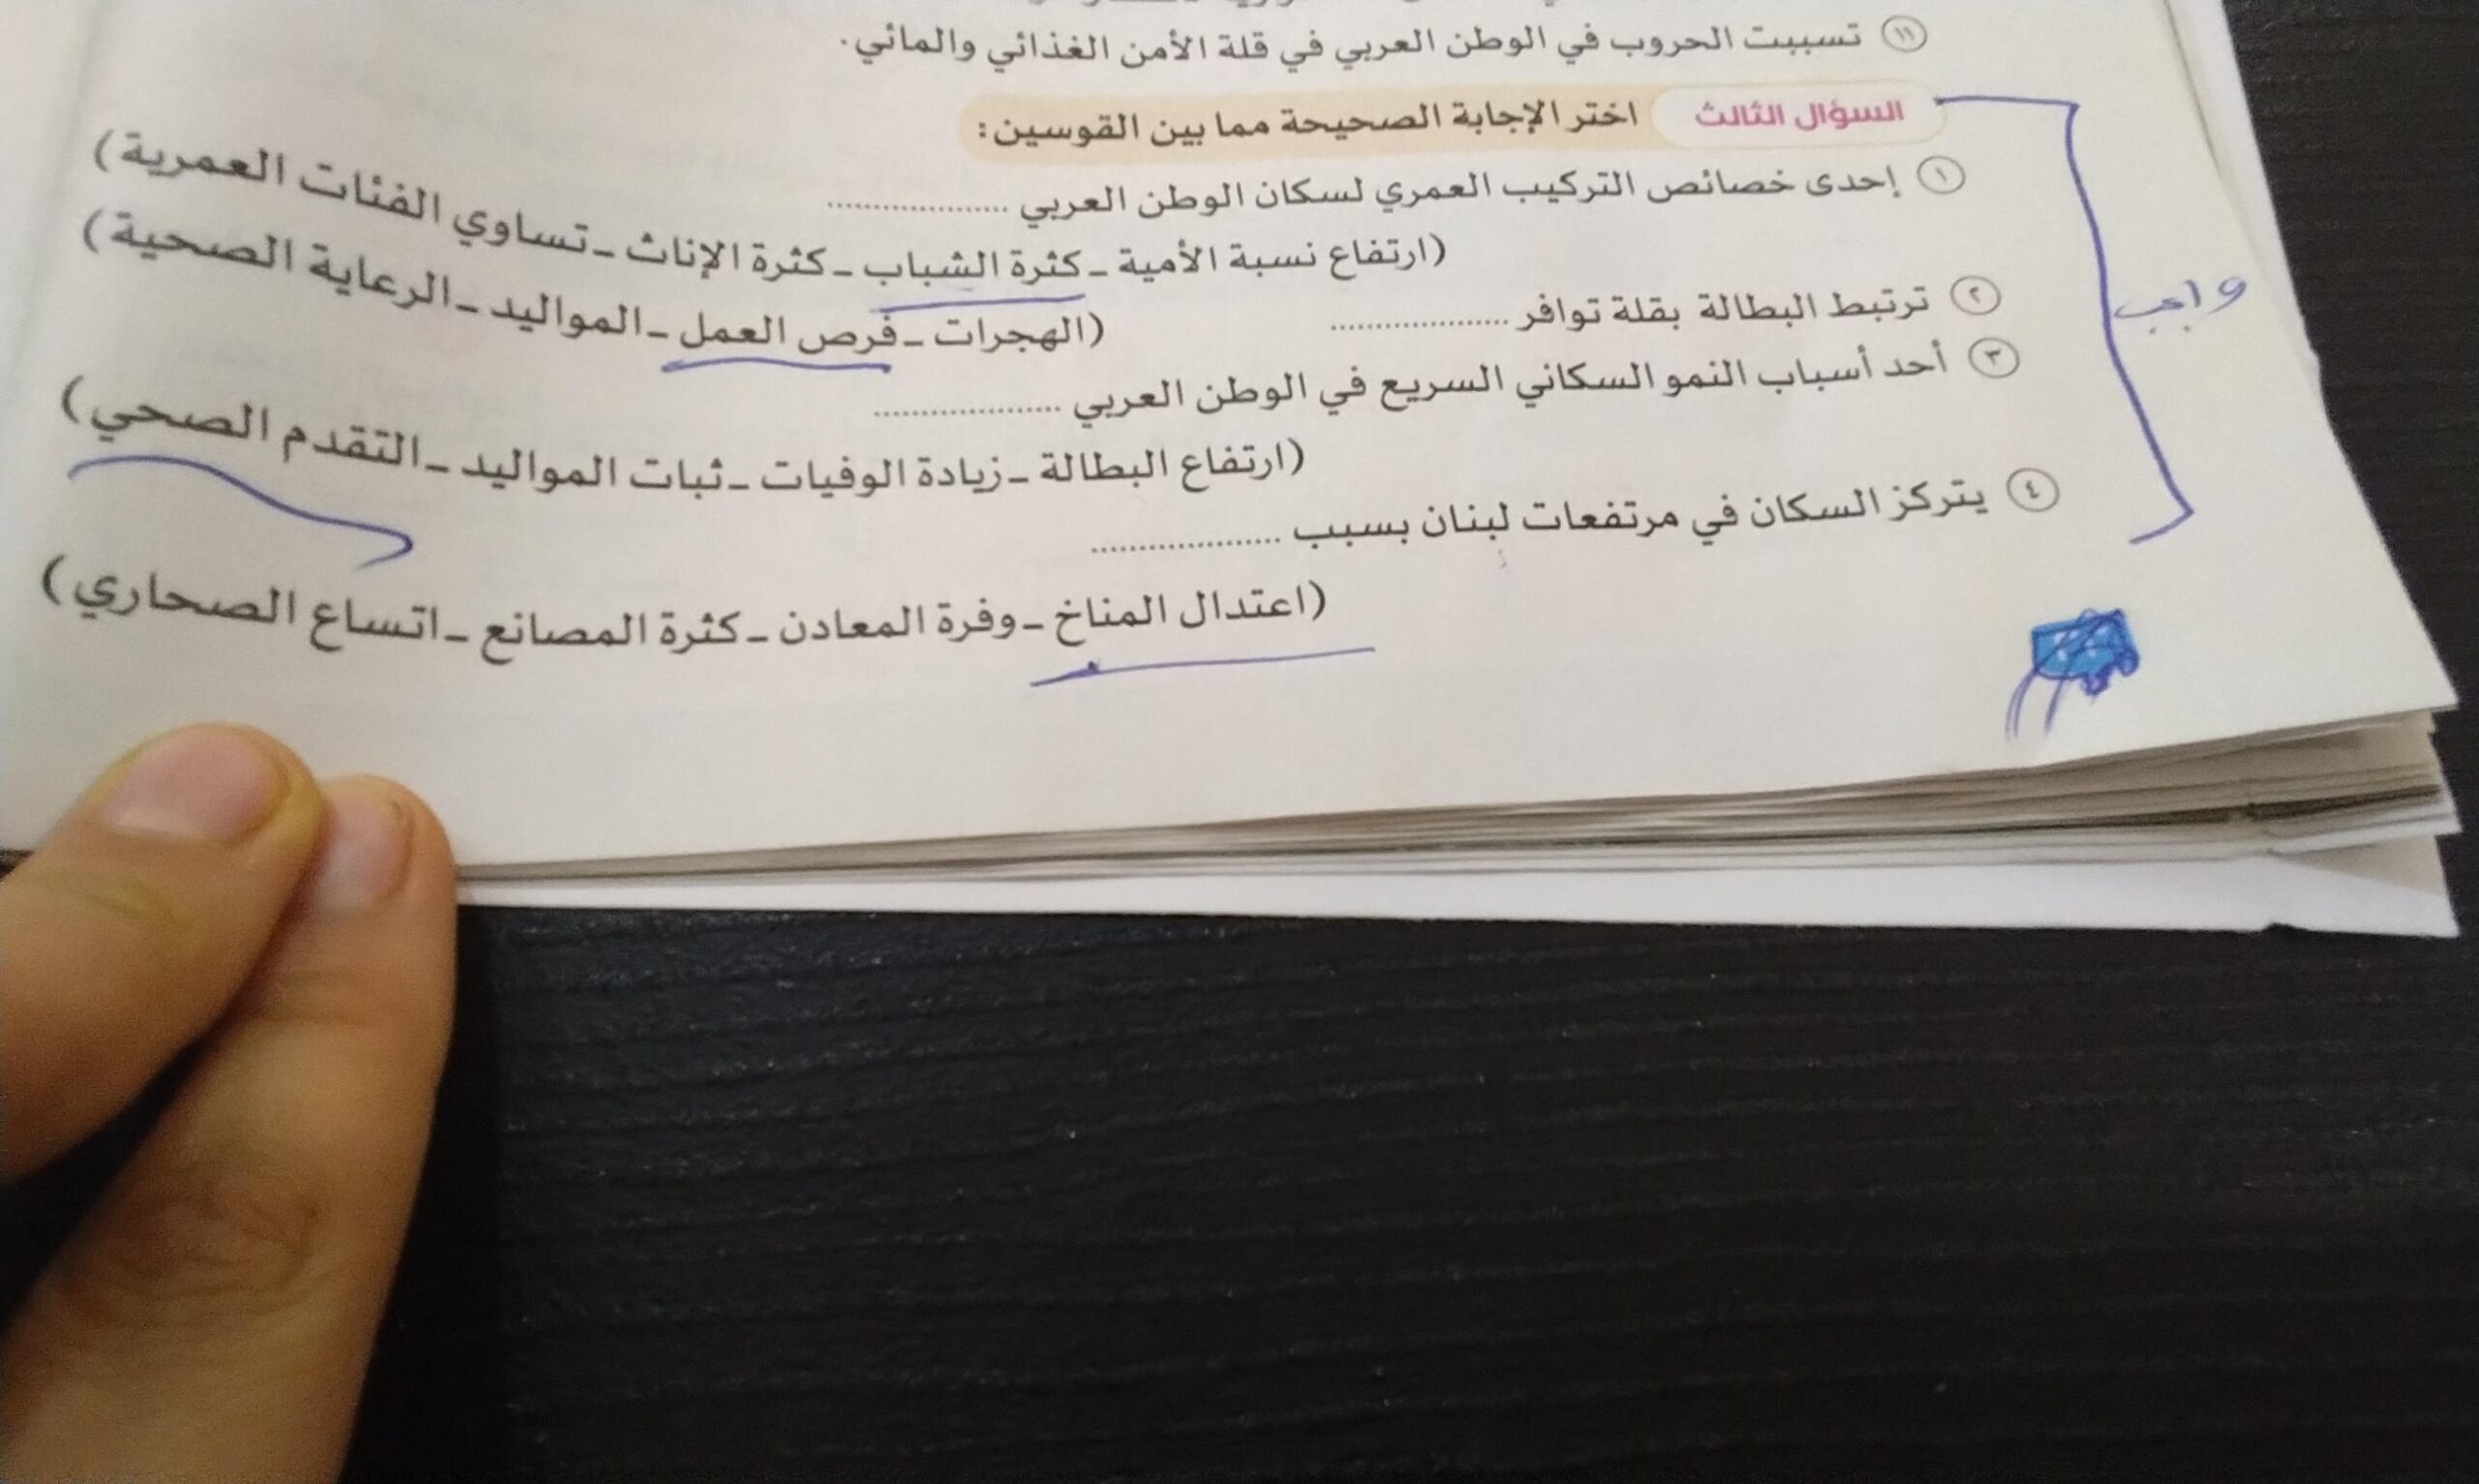 ١١ تسببت الحروب في الوطن العربي في قلة الأمن الغذائي والمائي.
السؤال الثالث اختر الإجابة الصحيحة مما بين القوسين:
١ إحدى خصائص التركيب العمري لسكان الوطن العربي ....................
(ارتفاع نسبة الأمية - كثرة الشباب - كثرة الإناث - تساوي الفئات العمرية)
٢ ترتبط البطالة بقلة توافر .................... (الهجرات - فرص العمل - المواليد - الرعاية الصحية)
واجب
٣ أحد أسباب النمو السكاني السريع في الوطن العربي ....................
(ارتفاع البطالة - زيادة الوفيات - ثبات المواليد - التقدم الصحي)
٤ يتركز السكان في مرتفعات لبنان بسبب ....................
(اعتدال المناخ - وفرة المعادن - كثرة المصانع - اتساع الصحاري)